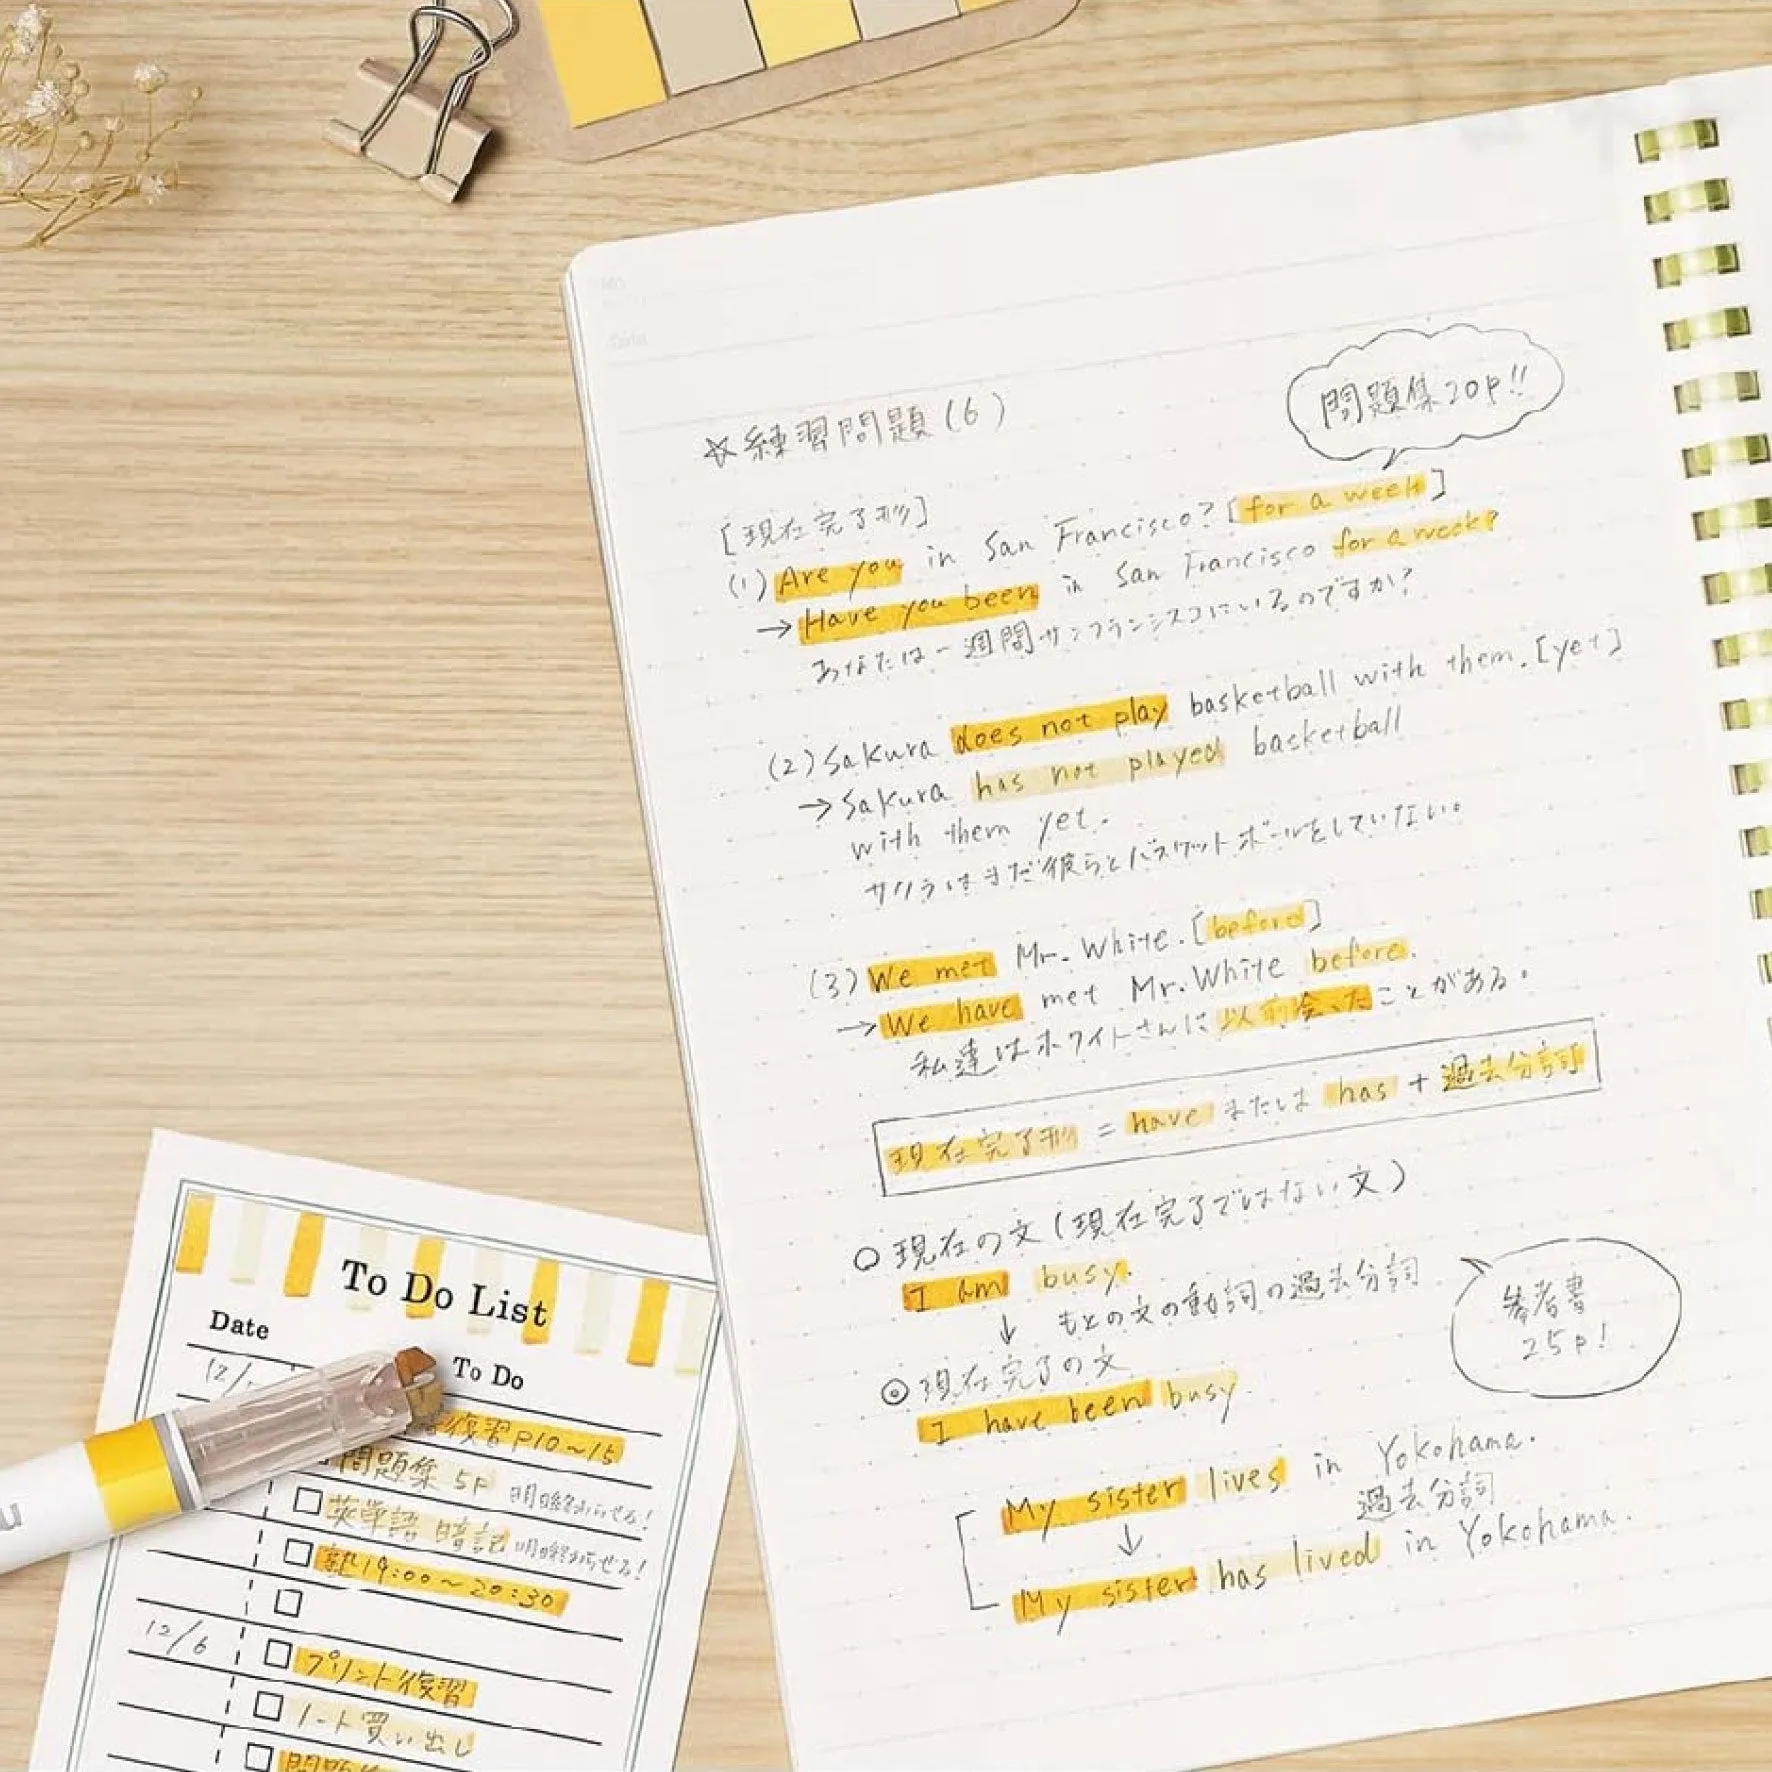 ☆練習問題(6)
問題集20P!!
[現在完了形]
(1) Are you in San Francisco? [for a week]
→ Have you been in San Francisco for a week?
あなたは一週間サンフランシスコにいるのですか?
(2) Sakura does not play basketball with them. [yet]
→ Sakura has not played basketball
with them yet.
サクラはまだ彼らとバスケットボールをしていない。
(3) We met Mr. White. [before]
→ We have met Mr. White before.
私達はホワイトさんに以前会ったことがある。
現在完了形 = have または has + 過去分詞
○ 現在の文(現在完了ではない文)
I am busy.
↓ もとの文の動詞の過去分詞
◎ 現在完了の文
I have been busy.
参考書
25P!
My sister lives in Yokohama.
↓ 過去分詞
My sister has lived in Yokohama.
To Do List
Date
To Do
12/
復習P10~15
問題集 5P
英単語 暗記
19:00~20:30
12/6 プリント復習
ノート買い出し